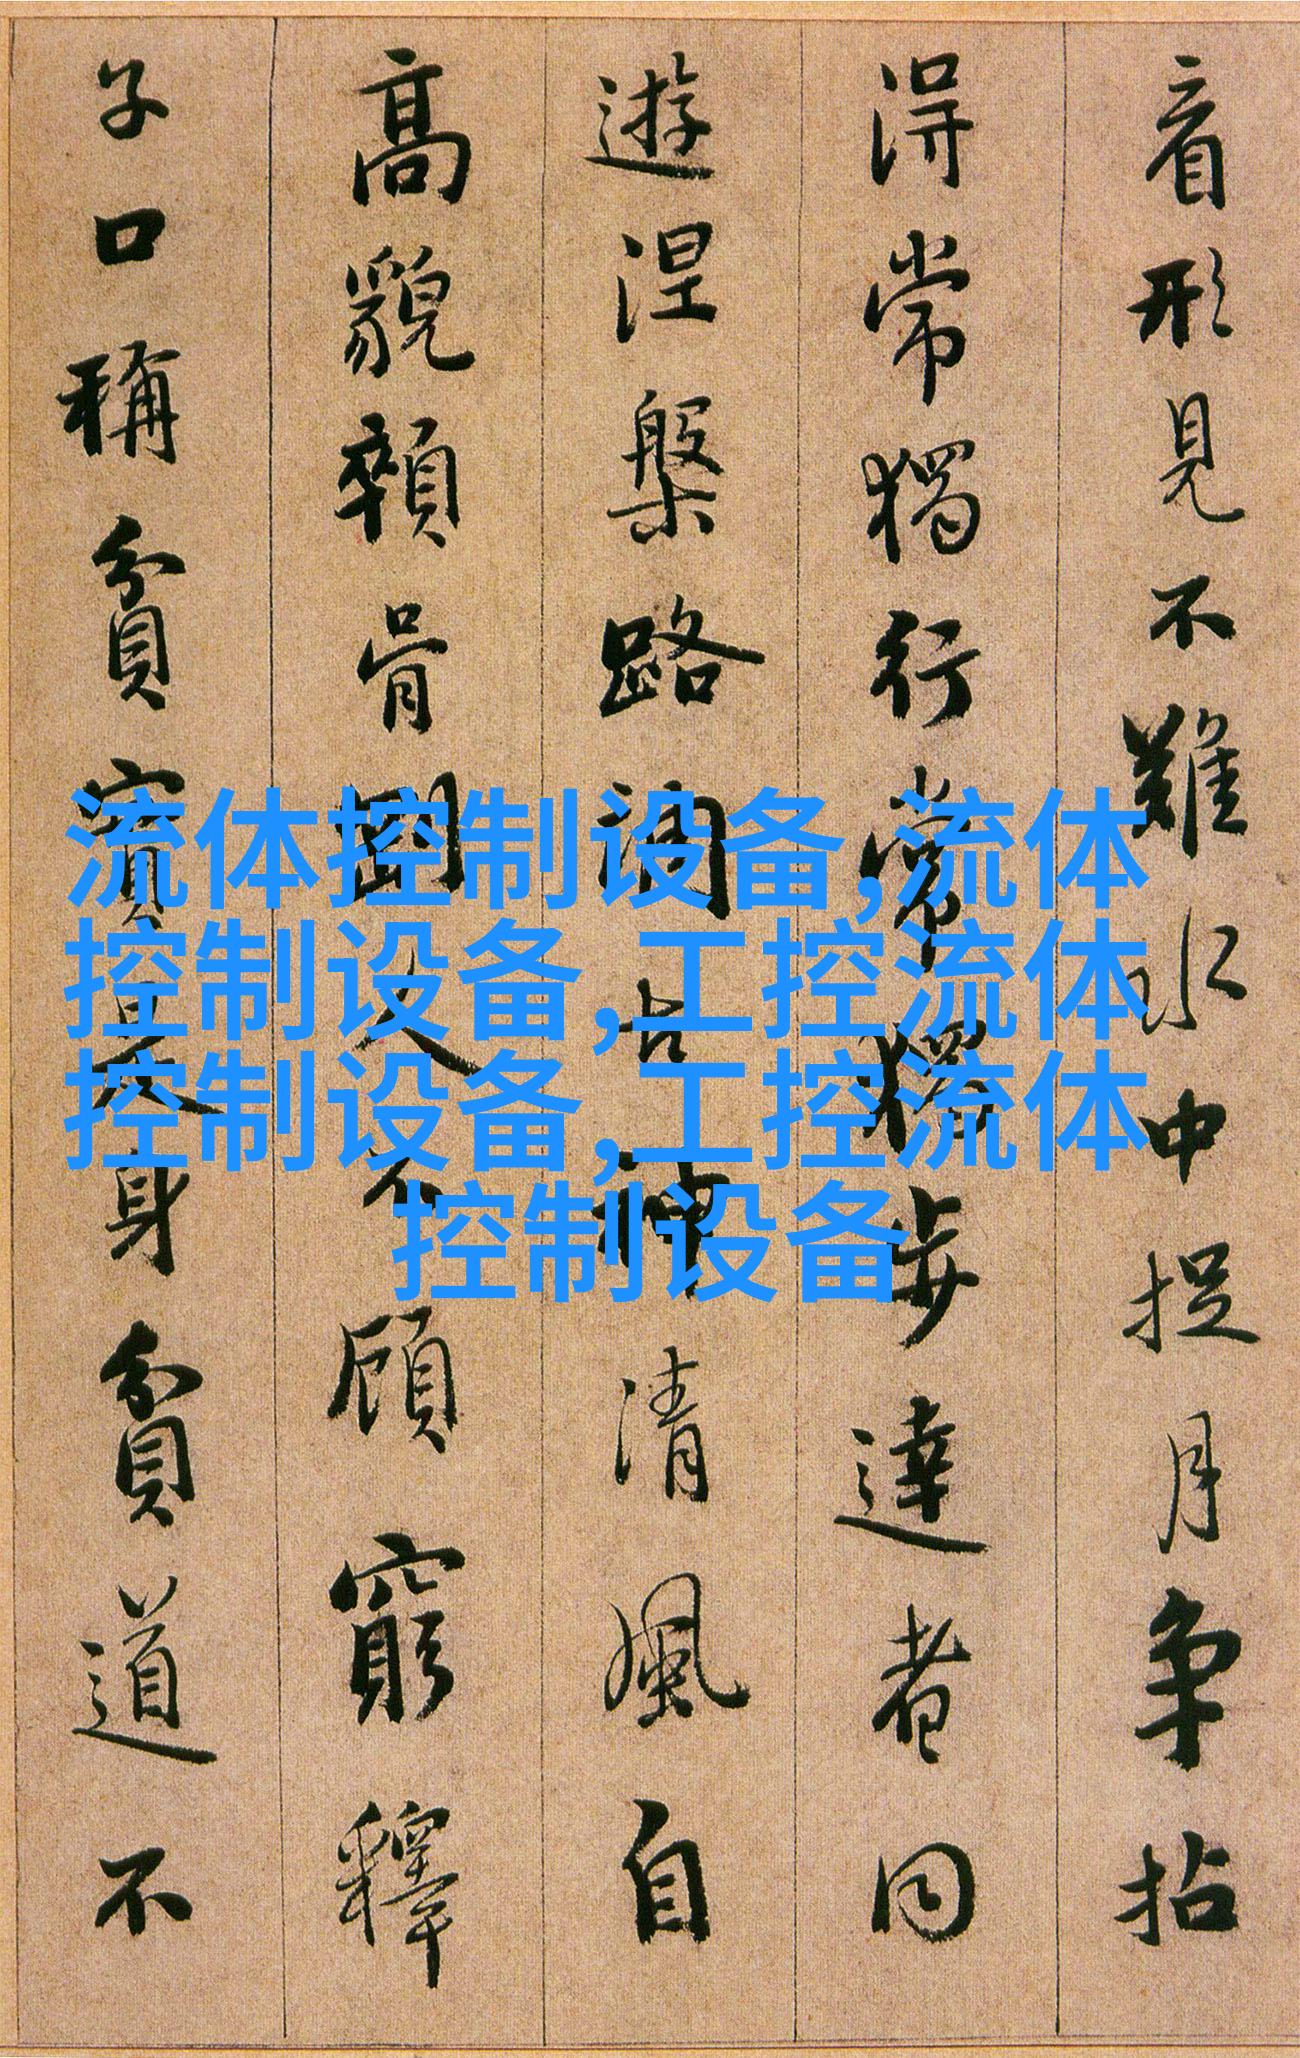 看形見不難水中捉月争拈
得常獨行常獨步達者同
遊涅槃路調古神清風自
高貌顇骨剛人不顧窮釋
子口稱貧實是身貧道不
流体控制设备,流体
控制设备,工控流体
控制设备,工控流体
控制设备